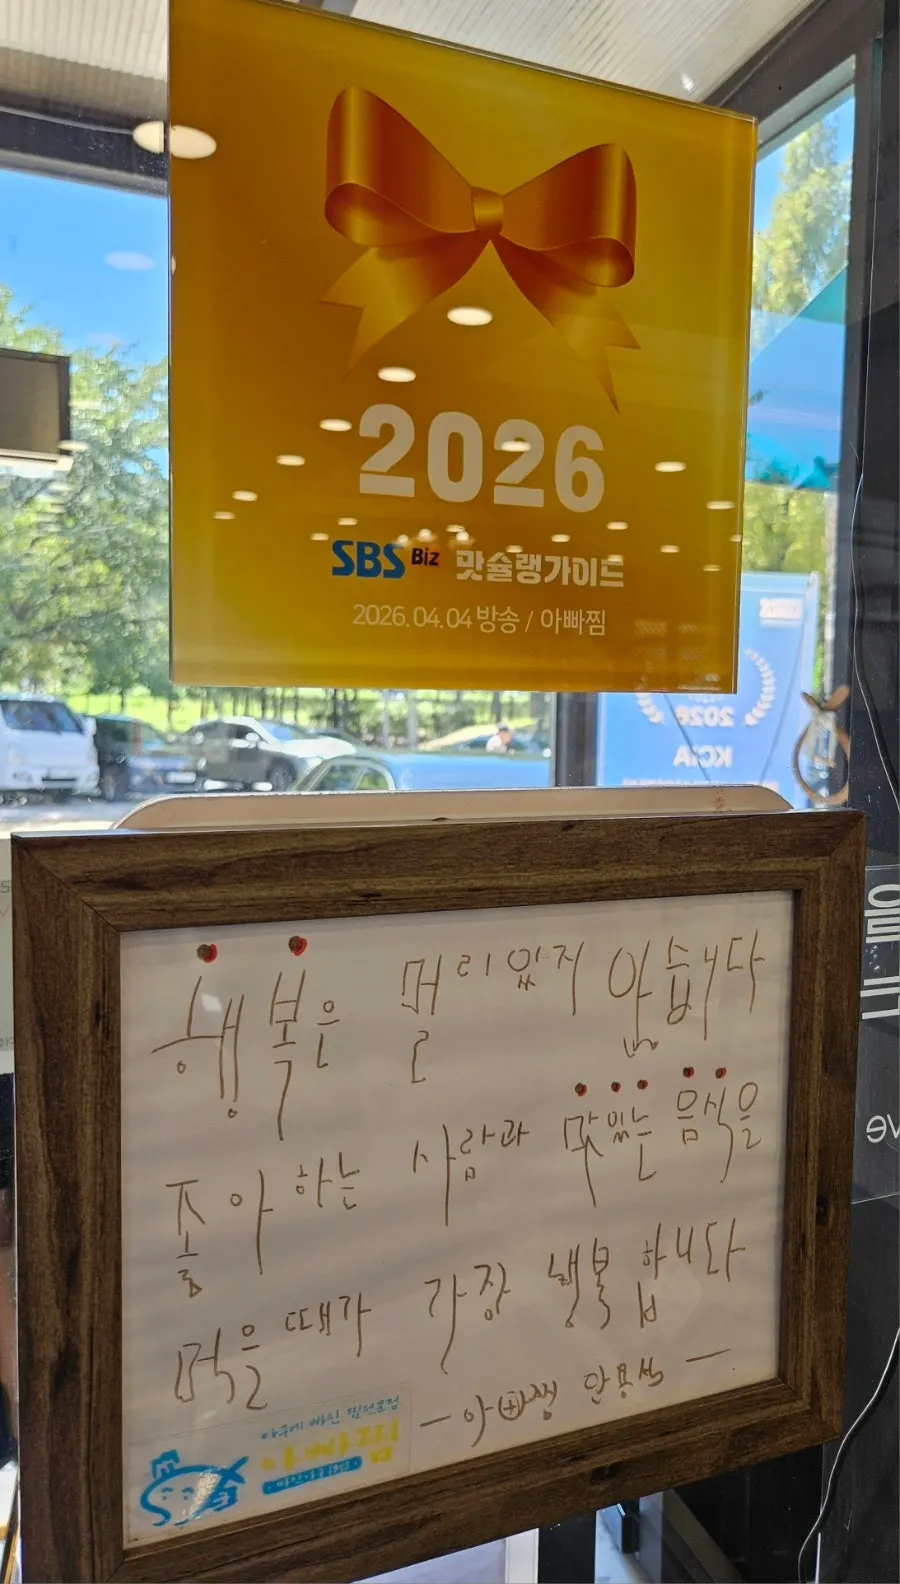 2026
SBS Biz 맛슐랭가이드
2026.04.04 방송 / 아빠찜
2026
KCIA
행복은 멀리있지 않습니다
좋아하는 사람과 맛있는 음식을
먹을때가 가장 행복합니다
- 아빠찜 안용석 -
아구에 빠진 찜전문점
아빠찜
을